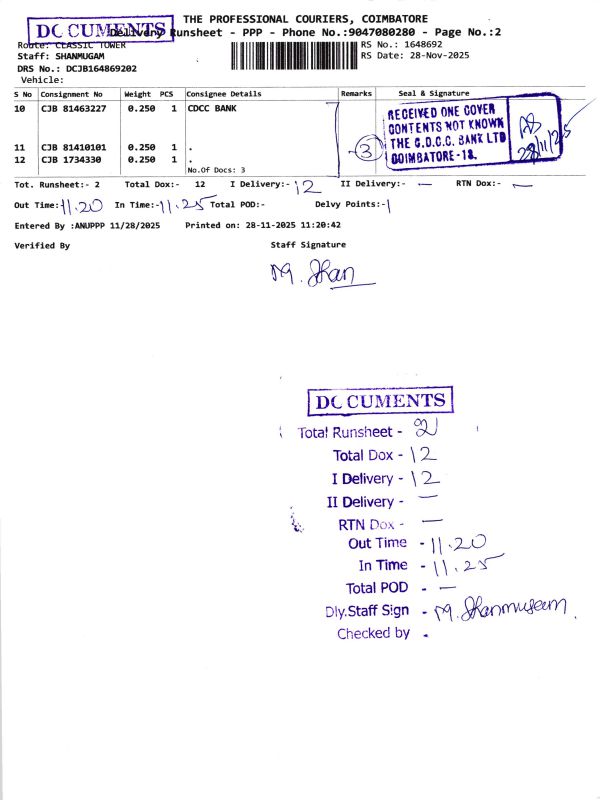 THE PROFESSIONAL COURIERS, COIMBATORE
DOCUMENTS
Delivery Runsheet - PPP - Phone No.:9047080280 - Page No.:2
Route: CLASSIC TOWER
RS No.: 1648692
Staff: SHANMUGAM
RS Date: 28-Nov-2025
DRS No.: DCJB164869202
Vehicle:
S No Consignment No Weight PCS Consignee Details Remarks Seal & Signature
10 CJB 81463227 0.250 1 CDCC BANK
RECEIVED ONE COVER
CONTENTS NOT KNOWN
THE C.D.C.C. BANK LTD
COIMBATORE-18.
28/11/25
11 CJB 81410101 0.250 1 .
3
12 CJB 1734330 0.250 1 .
No.Of Docs: 3
Tot. Runsheet:- 2 Total Dox:- 12 I Delivery:- 12 II Delivery:- — RTN Dox:- —
Out Time:-11.20 In Time:-11.25 Total POD:- Delvy Points:-1
Entered By :ANUPPP 11/28/2025 Printed on: 28-11-2025 11:20:42
Verified By Staff Signature
DOCUMENTS
Total Runsheet - 2
Total Dox - 12
I Delivery - 12
II Delivery - —
RTN Dox - —
Out Time - 11.20
In Time - 11.25
Total POD - —
Dly.Staff Sign - M. Shanmugam.
Checked by -